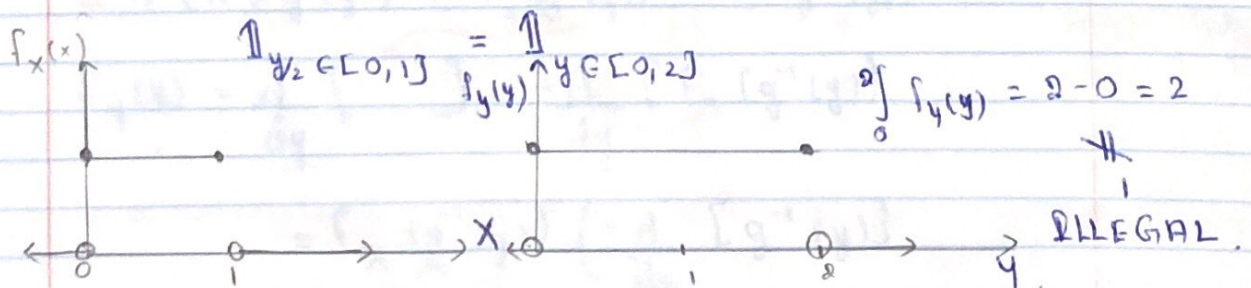 f_X(x) 𝟙_{y/2 ∈ [0,1]} = 𝟙_{y ∈ [0,2]}
f_y(y) ₀²∫ f_y(y) = 2 - 0 = 2
∦
1
ILLEGAL.
0 1 X 1 2 y